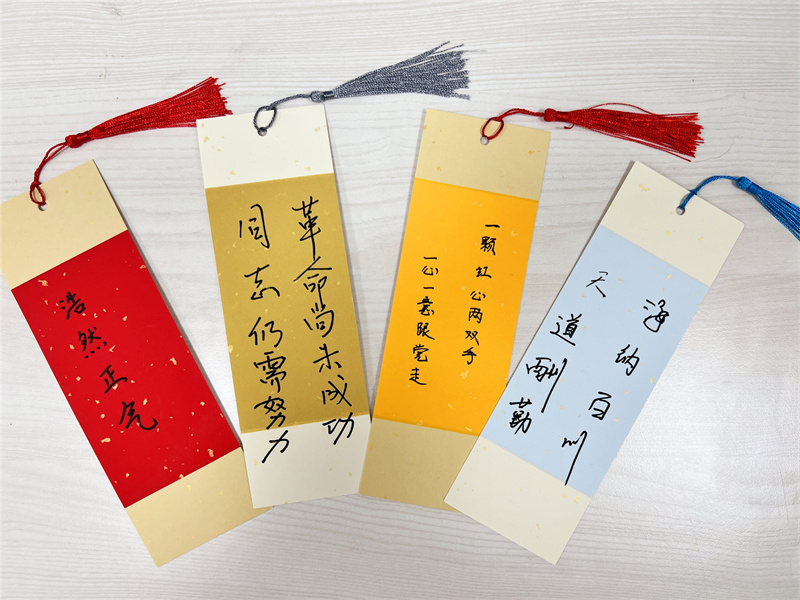 浩然正气
革命尚未成功
同志仍需努力
一颗红心两双手
一心一意跟党走
海纳百川
天道酬勤